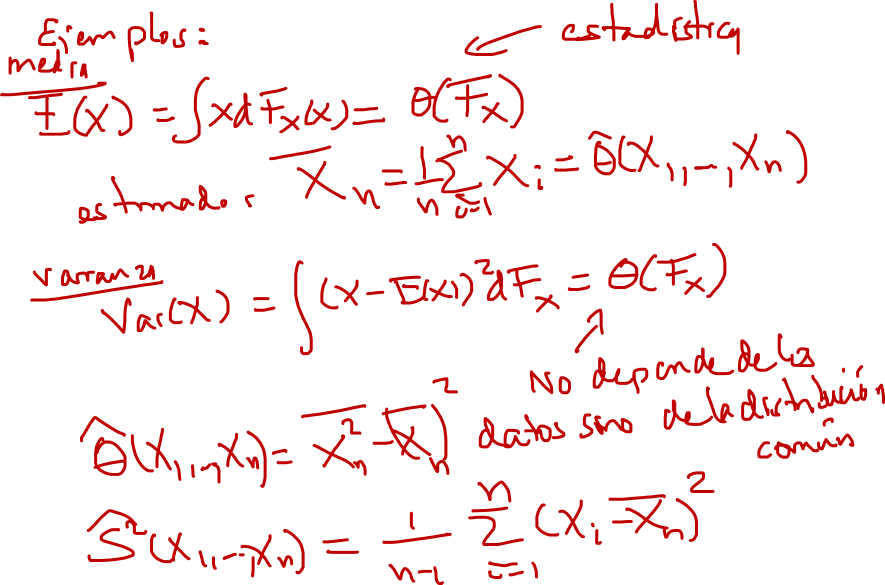 Ejemplos:
← estadística
media
E(X) = ∫xdF_X(x) = θ(F_X)
estimador X̄_n = 1/n ∑_{i=1}^{n} X_i = θ̂(X_1,-,X_n)
varianza
Var(X) = ∫(x-E(X))²dF_X = θ(F_X)
No depende de los
datos sino de la distribución
común
θ̂(X_1,-,X_n) = \overline{X_n^2} - (X̄_n)²
Ŝ²(X_1,-,X_n) = 1/(n-1) ∑_{i=1}^{n} (X_i - X̄_n)²